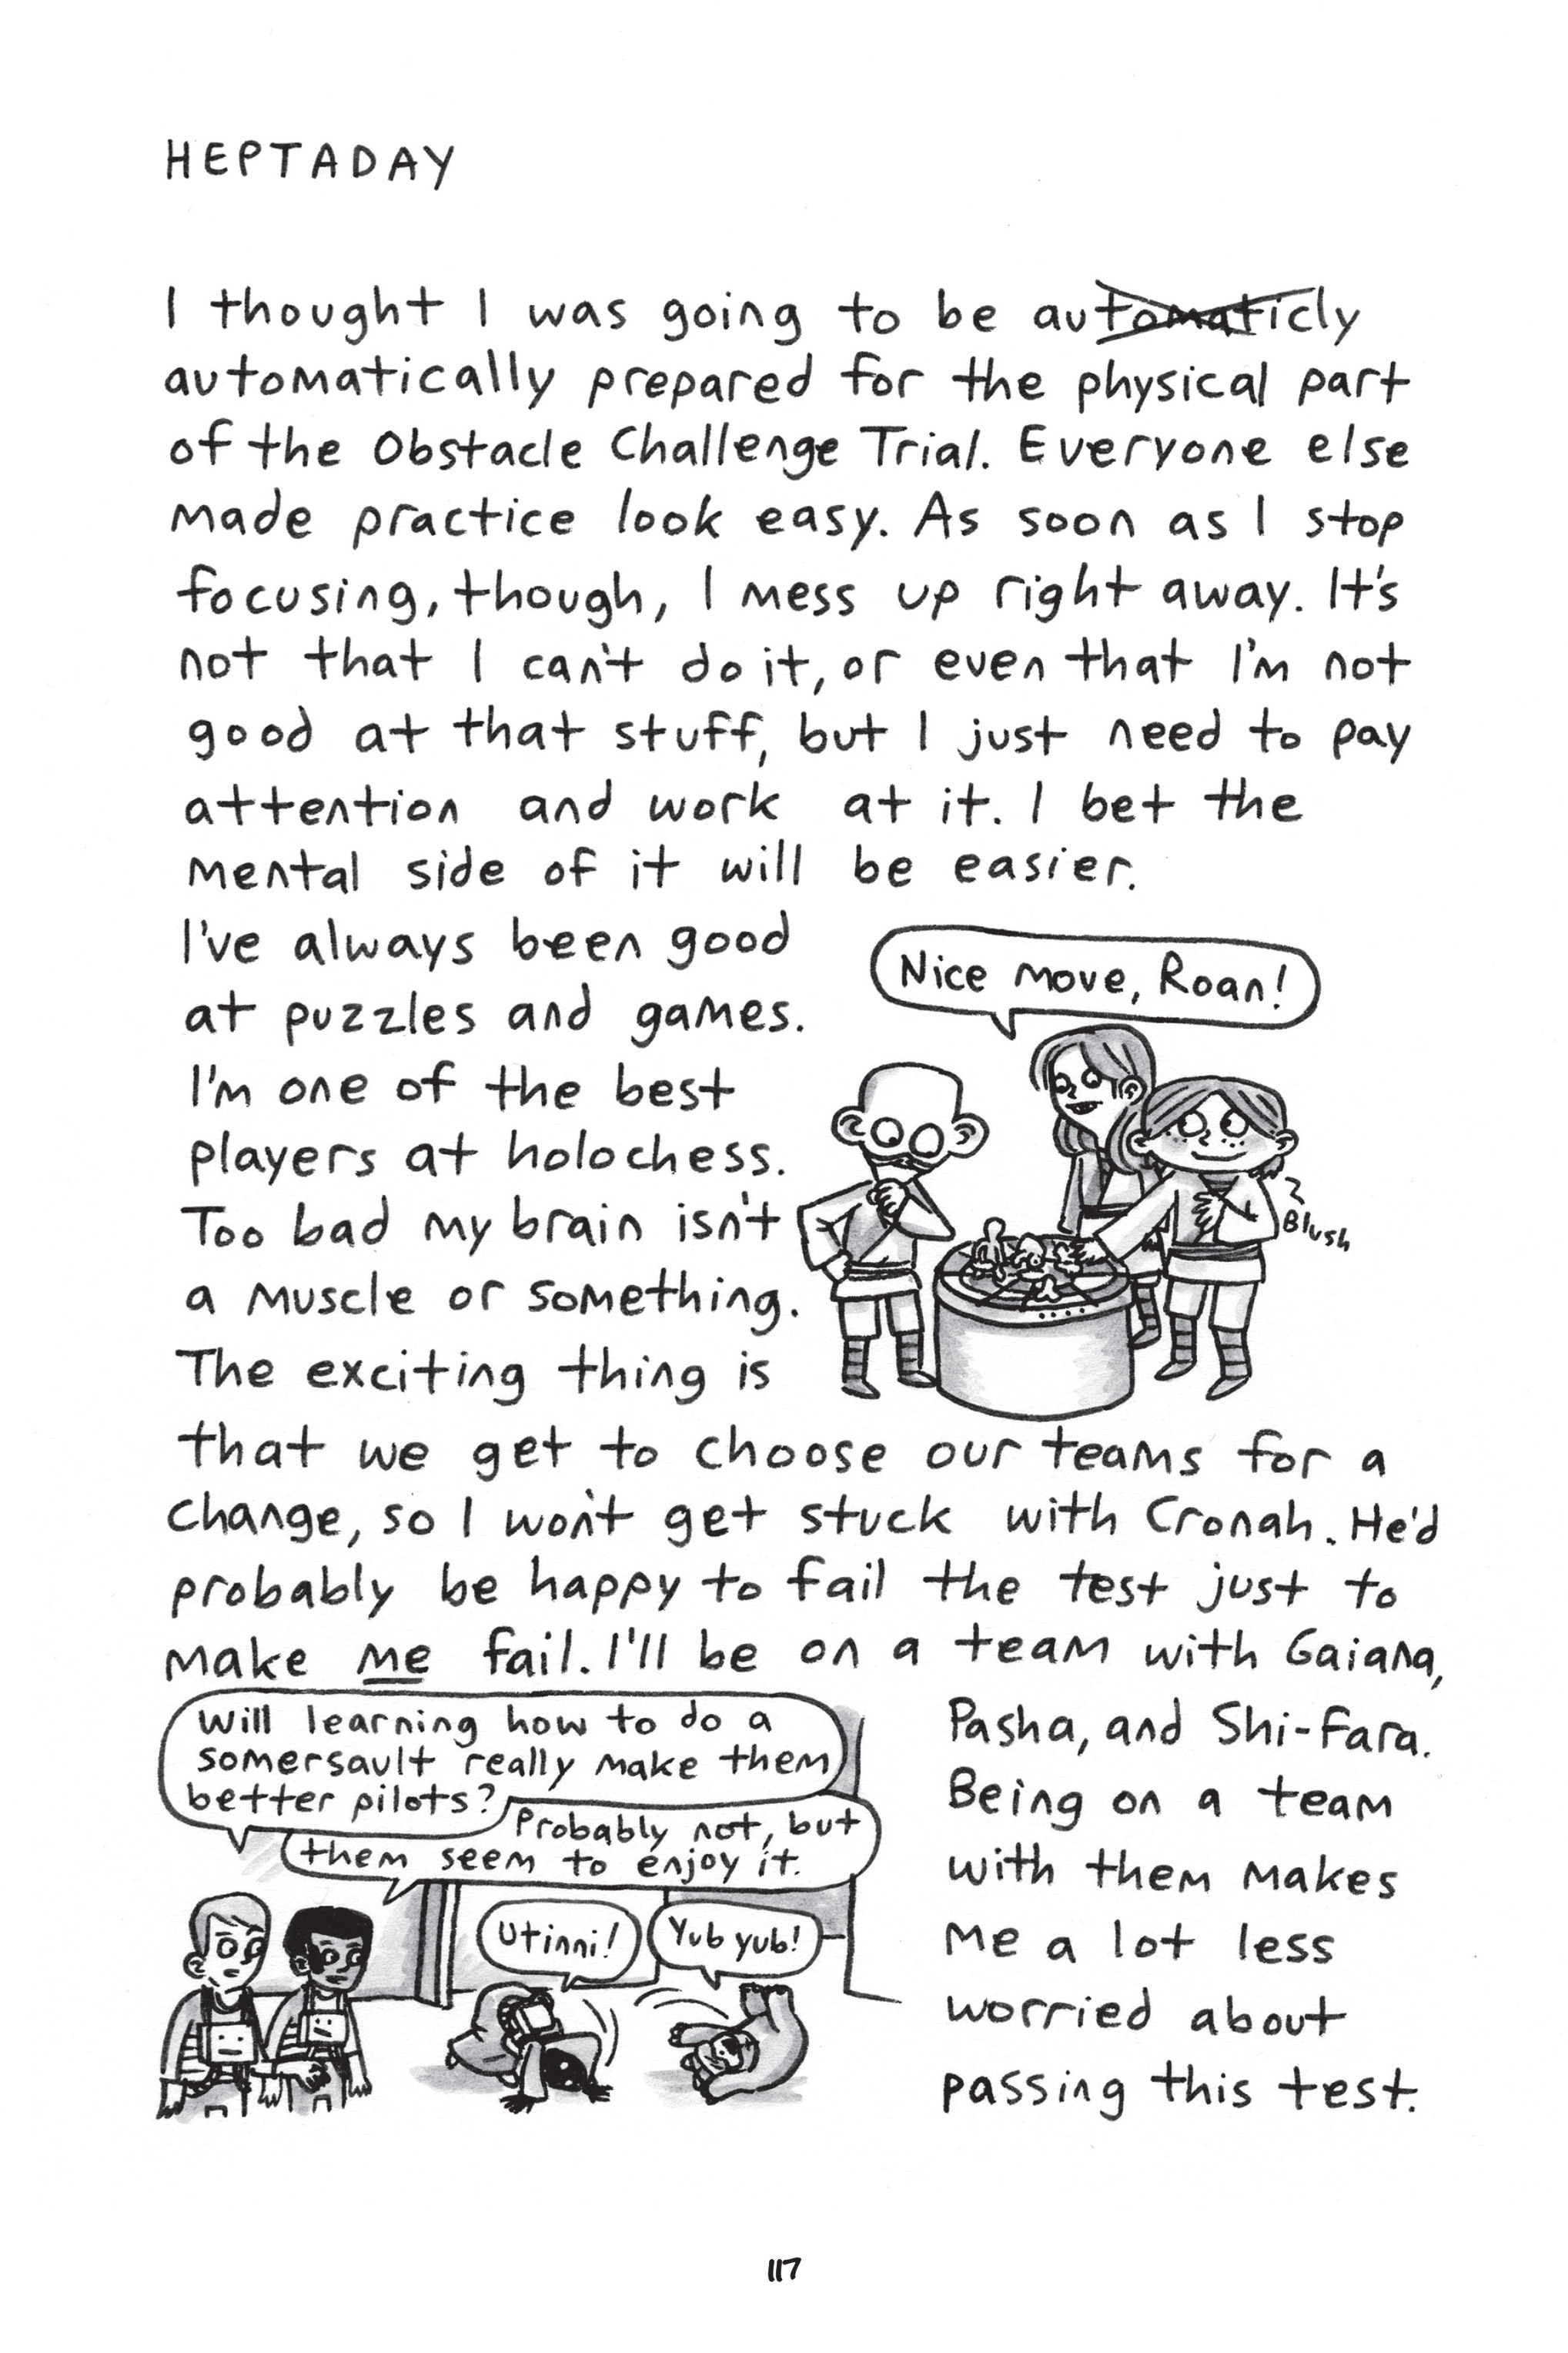 HEPTADAY
I thought I was going to be automaticly
automatically prepared for the physical part
of the Obstacle Challenge Trial. Everyone else
made practice look easy. As soon as I stop
focusing, though, I mess up right away. It's
not that I can't do it, or even that I'm not
good at that stuff, but I just need to pay
attention and work at it. I bet the
mental side of it will be easier.
I've always been good
at puzzles and games.
I'm one of the best
players at holochess.
Too bad my brain isn't
a muscle or something.
The exciting thing is
Nice move, Roan!
Blush
that we get to choose our teams for a
change, so I won't get stuck with Cronah. He'd
probably be happy to fail the test just to
make me fail. I'll be on a team with Gaiana,
Pasha, and Shi-Fara.
Being on a team
with them makes
me a lot less
worried about
passing this test.
Will learning how to do a
somersault really make them
better pilots?
Probably not, but
them seem to enjoy it.
Utinni!
Yub yub!
117